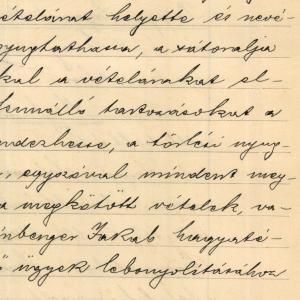 vételárat helyette és nevé-
nyugtathassa, a sátoralja
kal a vételárakat el-
fennálló tartozásokat a
ndezhesse, a törlési nyug-
, egyszóval mindent meg-
a megkötött vételek, va-
nberger Jakab hagyaté-
ő ügyek lebonyolitásához